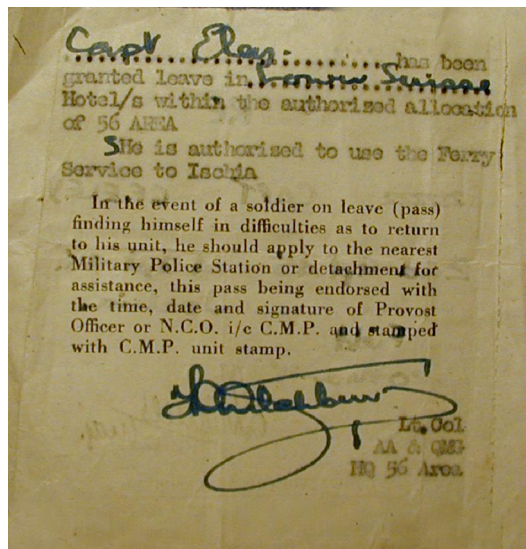 Capt Eley. has been
granted leave in
Hotel/s within the authorized allocation
of 56 AREA
SHe is authorised to use the Ferry
Service to Ischia
In the event of a soldier on leave (pass)
finding himself in difficulties as to return
to his unit, he should apply to the nearest
Military Police Station or detachment for
assistance, this pass being endorsed with
the time, date and signature of Provost
Officer or N.C.O. i/c C.M.P. and stamped
with C.M.P. unit stamp.
Lt. Col
AA & QMG
HQ 56 Area